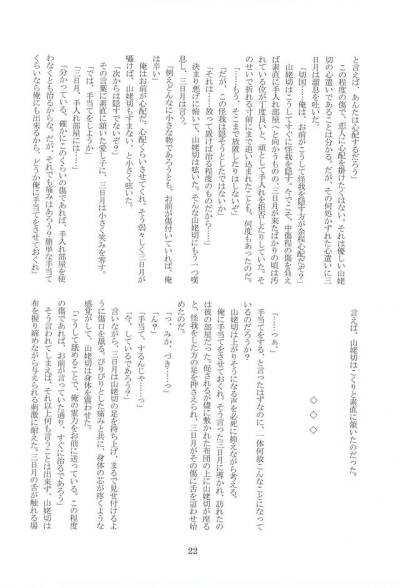 と言えば、あんたは心配するだろう」
この程度の傷で、恋人に心配を掛けたくはない。それは優しい山姥
切の心遣いであることは分かる。だが、その何処かずれた心遣いに三
日月は溜息を吐いた。
「切国……俺は、お前がこうして怪我を隠す方が余程心配だぞ？」
山姥切はこうしてすぐに怪我を隠す。今でこそ、中傷程の傷を負え
ば素直に手入れ部屋へと向かうものの、三日月が来たばかりの頃は汚
れている位が丁度良いと、頑として手入れを拒否したりしていた。そ
のせいで折れる寸前にまで追い込まれたことも、何度もあったのだ。
「……もう、そこまで放置したりはしないぞ」
「だが、この怪我は隠そうとしたではないか」
「それは……放って置けば治る程度のものだから……」
決まり悪げに俯いて、山姥切は呟いた。そんな山姥切にもう一つ嘆
息し、三日月は言う。
「例えどんなに小さな物であろうとも、お前が傷付いていれば、俺
は辛い」
俺はお前が心配だ。心配くらいさせてくれ。そう弱々しく三日月が
囁けば、山姥切もすまない、と小さく呟いた。
「次からは隠すでないぞ？」
その言葉に素直に頷いた愛し子に、三日月は小さく笑みを零す。
「では、手当てをしようか」
「三日月、手入れ部屋には……」
「分かっている。確かにこのくらいの傷であれば、手入れ部屋を使
わなくとも治るからな。だが、それでも痛みはあろう？簡単な手当て
くらいなら俺にも出来るから、どうか俺に手当てをさせておくれ」
言えば、山姥切はこくりと素直に頷いたのだった。
◇ ◇ ◇
「……っあ」
手当てをする、と言ったはずなのに、一体何故こんなことになって
いるのだろうか？
山姥切は上がりそうになる声を必死に抑えながら考える。
俺に手当てをさせておくれ。そう言った三日月に導かれ、訪れたの
は彼の部屋だった。促されるが儘に敷かれた布団の上に山姥切が座る
と、怪我をした方の足を押さえられ、三日月がその傷に舌を這わせ始
めたのだ。
「っ、みか、づき……っ」
「ん？」
「手当て、するんじゃ……っ」
「今、しているであろう？」
言いながら、三日月は山姥切の足を持ち上げ、まるで見せ付けるよ
うに傷口を舐る。ぴりぴりとした痛みと共に、身体の芯が疼くような
感覚がして、山姥切は身体を震わせた。
「こうして舐めることで、俺の霊力をお前に送っている。この程度
の傷であれば、お前が言っていた通り、すぐに治るであろう」
そう言われてしまえば、それ以上何も言うことは出来ず、山姥切は
布を握り締めながら与えられる刺激に耐えた。三日月の舌が触れる場
22